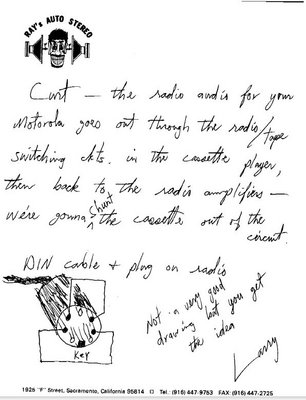 RAY'S AUTO STEREO
Curt — the radio audio for your
Motorola goes out through the radio/tape
switching ckts. in the cassette player,
then back to the radio amplifiers —
we're gonna shunt the cassette out of the
circuit.
DIN cable & plug on radio
Key
Not a very good
drawing but you get
the idea
Larry
1825 "F" Street, Sacramento, California 95814 Tel. (916) 447-9763 FAX (916) 447-2725